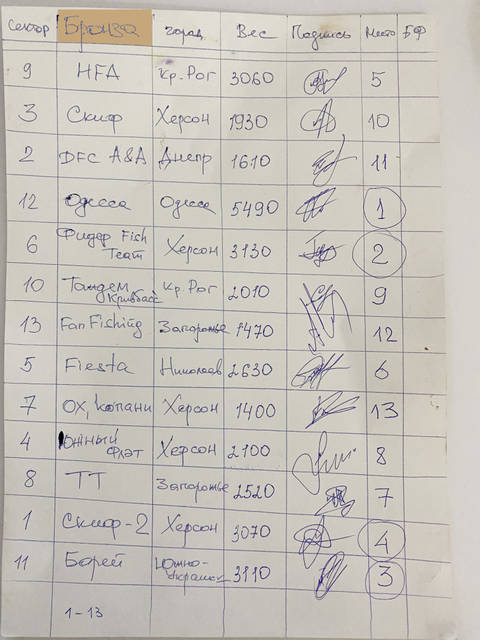 Сектор Бронза город Вес Подпись Место БФ
9 HFA Кр. Рог 3060 5
3 Скиф Херсон 1930 10
2 DFC A&A Днепр 1610 11
12 Одесса Одесса 5490 1
6 Фидер Fish Team Херсон 3130 2
10 Тандем Кривбасс Кр. Рог 2010 9
13 Fan Fishing Запорожье 1470 12
5 Fiesta Николаев 2630 6
7 Ох, Копани Херсон 1400 13
4 Южный Флэт Херсон 2100 8
8 ТТ Запорожье 2520 7
1 Скиф-2 Херсон 3070 4
11 Борей Южно- 3110 3
1-13